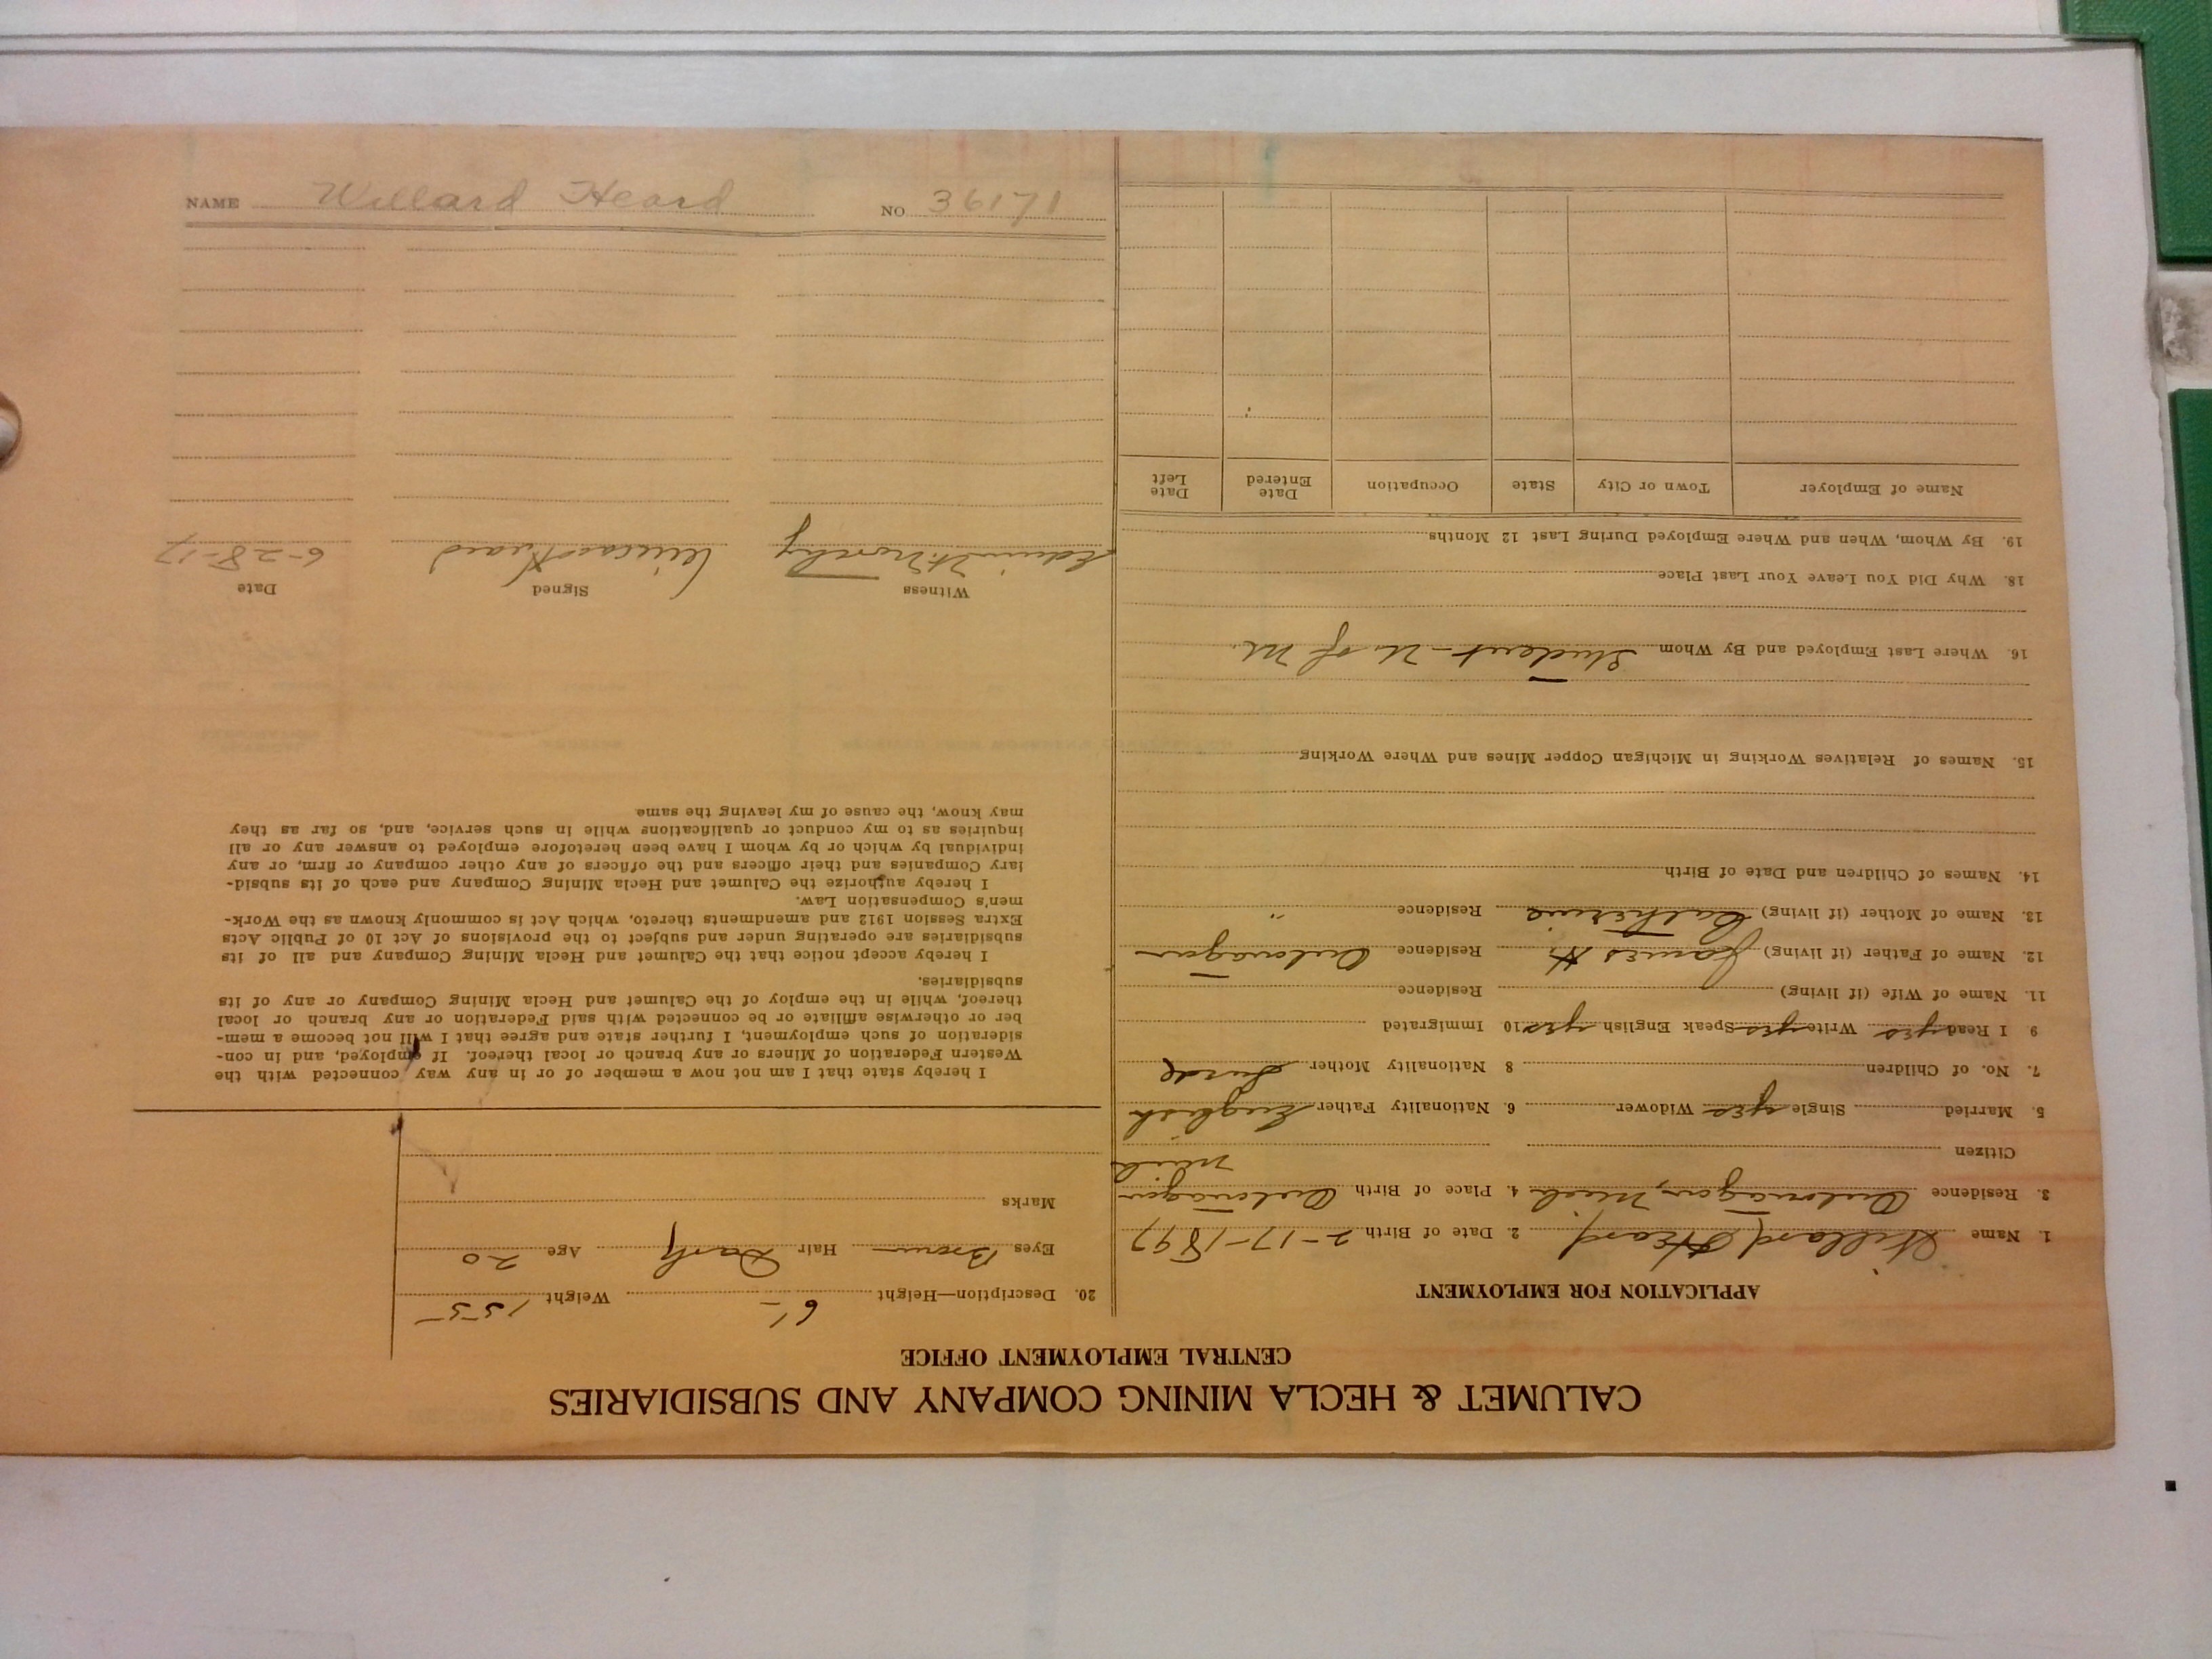 CALUMET & HECLA MINING COMPANY AND SUBSIDIARIES
CENTRAL EMPLOYMENT OFFICE
APPLICATION FOR EMPLOYMENT
1. Name Willard Heard 2. Date of Birth 2-17-1897
3. Residence Ontonagon, Mich 4. Place of Birth Ontonagon
Mich
Citizen
5. Married Single yes Widower 6. Nationality Father English
7. No. of Children 8 Nationality Mother
9 I Read yes Write yes Speak English yes 10 Immigrated
11. Name of Wife (if living) Residence
12. Name of Father (if living) James H. Residence Ontonagon
13. Name of Mother (if living) Catherine Residence "
14. Names of Children and Date of Birth
15. Names of Relatives Working in Michigan Copper Mines and Where Working
16. Where Last Employed and By Whom Student - U. of M.
18. Why Did You Leave Your Last Place
19. By Whom, When and Where Employed During Last 12 Months
Name of Employer Town or City State Occupation Date Entered Date Left
20. Description—Height 6'- Weight 155
Eyes Brown Hair Dark Age 20
Marks
I hereby state that I am not now a member of or in any way connected with the
Western Federation of Miners or any branch or local thereof. If employed, and in con-
sideration of such employment, I further state and agree that I will not become a mem-
ber or otherwise affiliate or be connected with said Federation or any branch or local
thereof, while in the employ of the Calumet and Hecla Mining Company or any of its
subsidiaries.
I hereby accept notice that the Calumet and Hecla Mining Company and all of its
subsidiaries are operating under and subject to the provisions of Act 10 of Public Acts
Extra Session 1912 and amendments thereto, which Act is commonly known as the Work-
men's Compensation Law.
I hereby authorize the Calumet and Hecla Mining Company and each of its subsid-
iary Companies and their officers and the officers of any other company or firm, or any
individual by which or by whom I have been heretofore employed to answer any or all
inquiries as to my conduct or qualifications while in such service, and, so far as they
may know, the cause of my leaving the same
Witness Signed Date
Willard Heard 6-28-17
NAME Willard Heard NO 36171